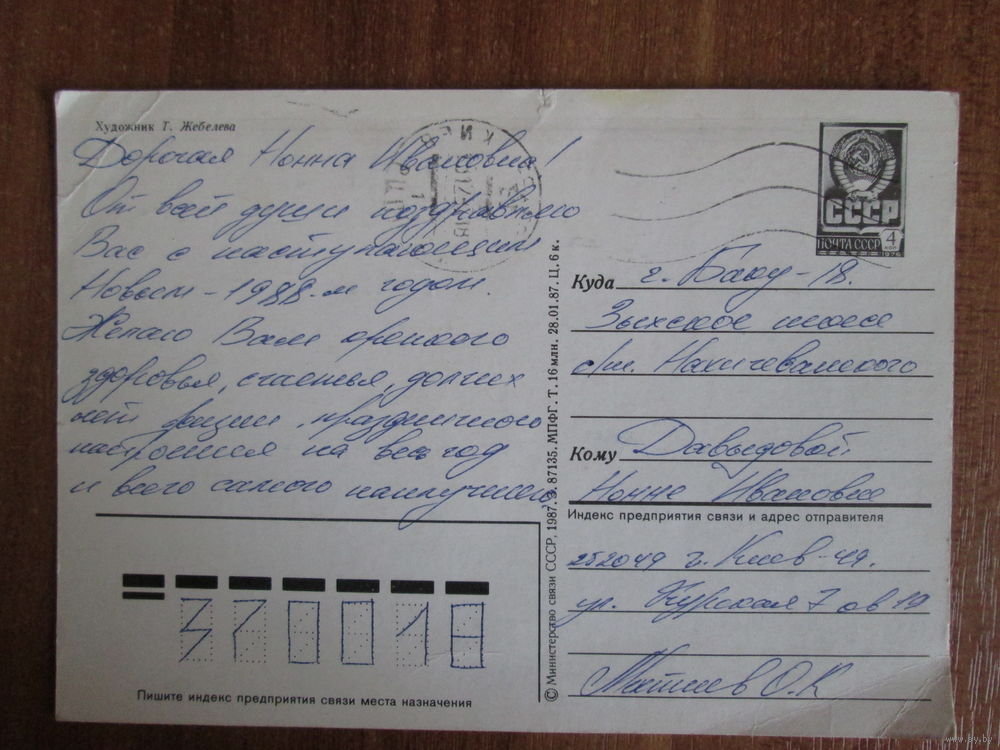 Художник Т. Жебелева
Дорогая Нонна Ивановна!
От всей души поздравляю
Вас с наступающим
Новым - 1988-м годом.
Желаю Вам крепкого
здоровья, счастья, долгих
лет жизни, праздничного
настроения на весь год
и всего самого наилучшего
КИЕВ
СССР
ПОЧТА СССР
4
коп
1976
Куда г. Баку-18.
Зыхское шоссе
Нахичеванского
Кому Давыдовой
Нонне Ивановне
Индекс предприятия связи и адрес отправителя
252049 г. Киев-49.
ул. Курская 7 кв 19
О.К
370018
Пишите индекс предприятия связи места назначения
© Министерство связи СССР, 1987. З. 87135. МПФГ. Т. 16 млн. 28.01.87. Ц. 6 к.
www.ay.by